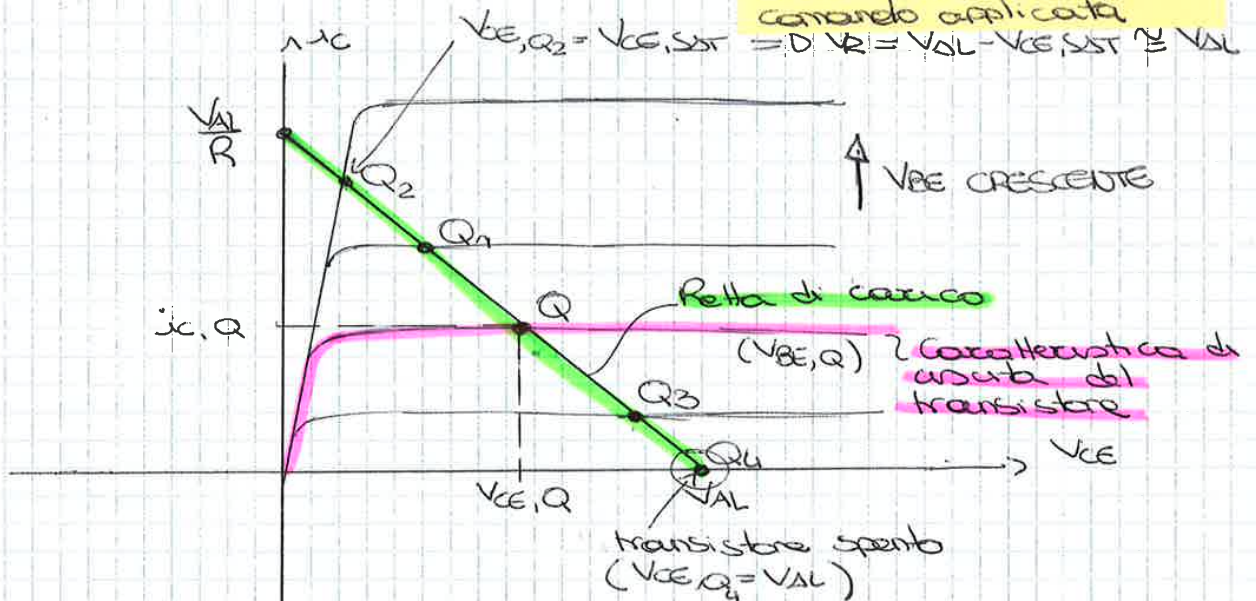 comando applicata
VCE,Q2 = VCE,SAT => VR = VAL - VCE,SAT ≅ VAL
ic
VAL/R
Q2
VBE CRESCENTE
Q1
Retta di carico
Q
ic,Q
(VBE,Q)
Caratteristica di
uscita del
transistore
Q3
VCE
Q4
VCE,Q
VAL
transistore spento
(VCE,Q4 = VAL)